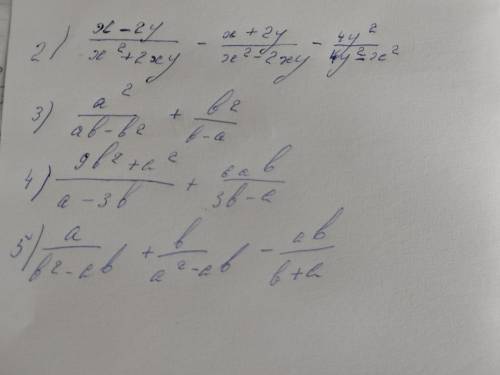 2) (x-2y)/(x²+2xy) - (x+2y)/(x²-2xy) - 4y²/(4y²-x²)
3) a²/(ab-b²) + b²/(b-a)
4) (9b²+a²)/(a-3b) + 6ab/(3b-a)
5) a/(b²-ab) + b/(a²-ab) - ab/(b+a)